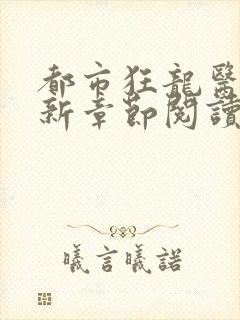 都市狂龍醫
新章節閱讀
曦言曦諾